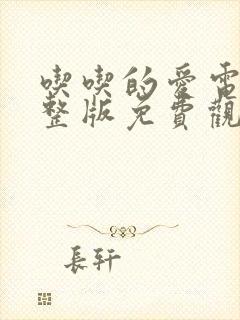 喫喫的愛電
整版免費觀
長轩